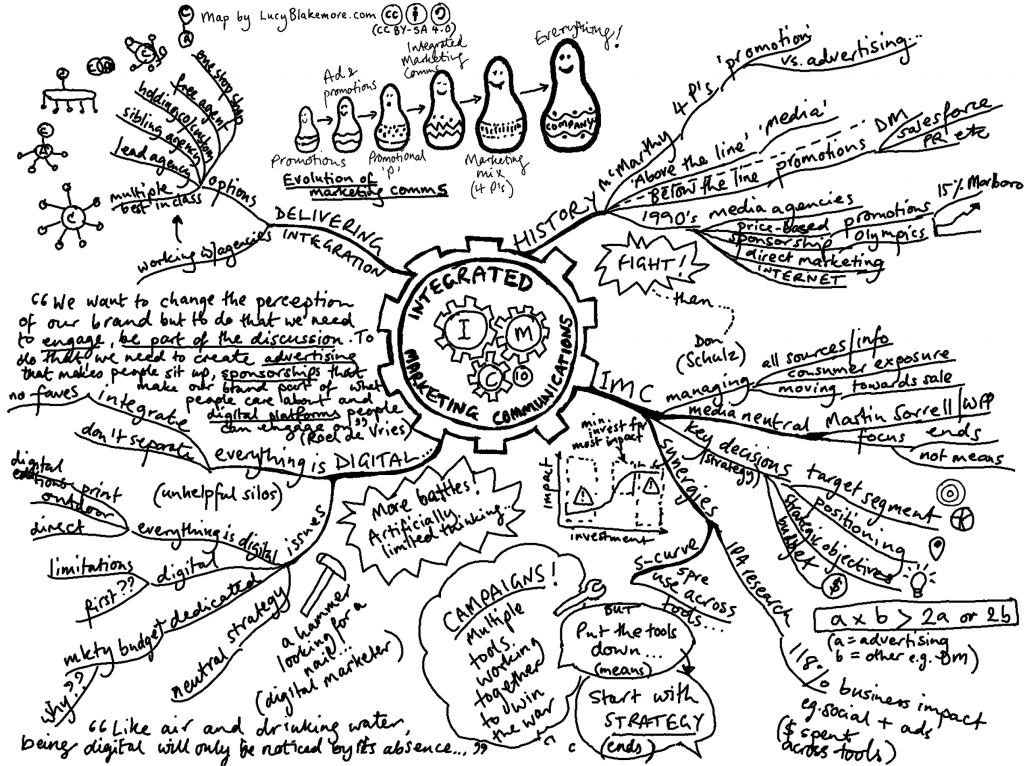 Map by LucyBlakemore.com
(CC BY-SA 4.0)
Promotions
Ad &
promotions
Promotional
'P'
Integrated
Marketing
Comms
Marketing
mix
(4 P's)
Everything!
COMPANY
Evolution of
marketing comms
INTEGRATED
MARKETING COMMUNICATIONS
I
M
C
HISTORY
McMarthy
4 P's
'promotion'
vs. advertising...
'Above the line' 'media'
Below the line
promotions
DM
salesforce
PR etc
1990's media agencies
price-based promotions
15% Marlboro
sponsorship Olympics
direct marketing
INTERNET
FIGHT!
then...
IMC
Don
(Schulz)
managing
all sources/info
consumer exposure
moving towards sale
media neutral
Martin Sorrell/WPP
focus
ends
not means
key decisions
(strategy)
target segment
positioning
strategic objectives
budget
$
synergies
IPA research
a x b > 2a or 2b
(a = advertising
b = other e.g. DM)
118% business impact
eg. social + ads
($ spent
across tools)
S-curve
spre
use across
tools...
min. invest for
most impact
impact
investment
BUT
Put the tools
down...
(means)
Start with
STRATEGY
(ends)
CAMPAIGNS!
Multiple
tools
working
together
to win
the war
everything is DIGITAL...
integrate
no faves
don't separate
(unhelpful silos)
More battles!
Artificially
limited thinking...
issues
everything is digital
digital
editions - print
outdoor
direct
digital
limitations
first??
dedicated
mktg budget
why??
neutral strategy
a hammer
looking for a
nail...
(digital marketer)
"Like air and drinking water,
being digital will only be noticed by its absence...."
DELIVERING
INTEGRATION
options
one stop shop
free agent
holding co/custom
sibling agency
lead agency
multiple
best in class
working w/agencies
"We want to change the perception
of our brand but to do that we need
to engage, be part of the discussion. To
do that we need to create advertising
that makes people sit up, sponsorships that
make our brand part of what
people care about and
digital platforms people
can engage on"
(Roel de Vries)